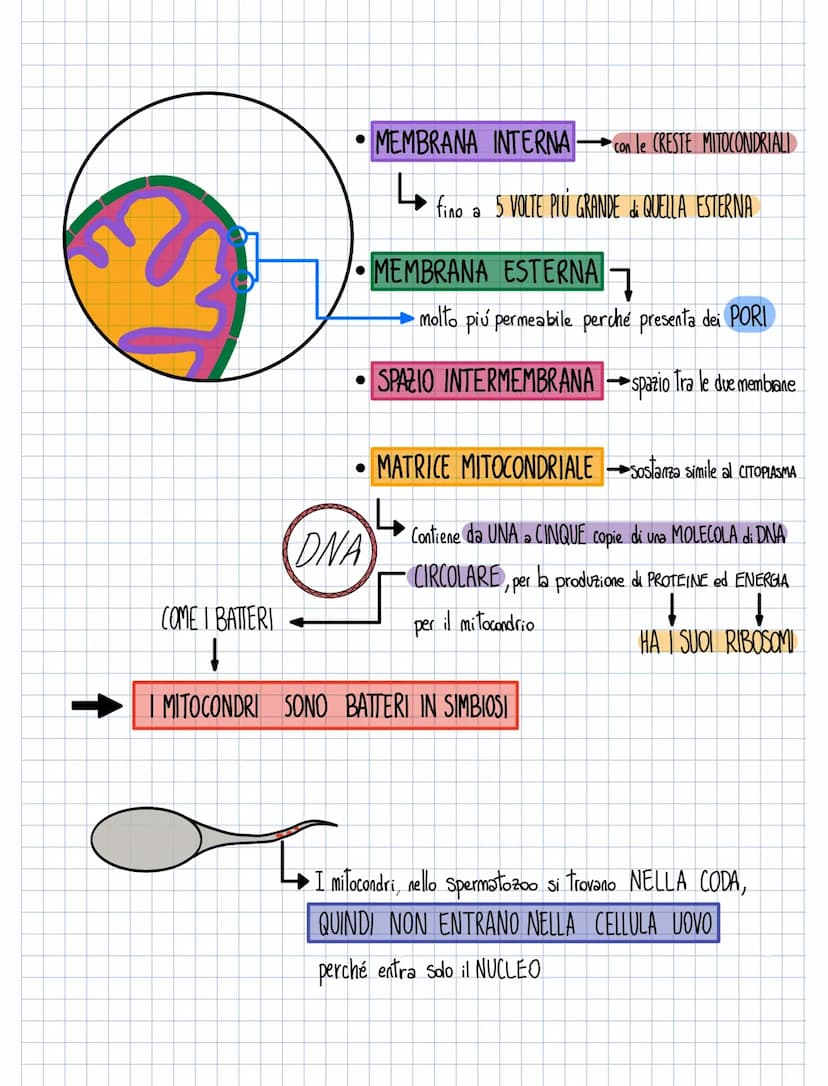 • MEMBRANA INTERNA → con le CRESTE MITOCONDRIALI
fino a 5 VOLTE PIÚ GRANDE di QUELLA ESTERNA
• MEMBRANA ESTERNA
molto piú permeabile perché presenta dei PORI
• SPAZIO INTERMEMBRANA → spazio tra le due membrane
• MATRICE MITOCONDRIALE → sostanza simile al CITOPLASMA
DNA
Contiene da UNA a CINQUE copie di una MOLECOLA di DNA
CIRCOLARE, per la produzione di PROTEINE ed ENERGIA
per il mitocondrio
HA I SUOI RIBOSOMI
COME I BATTERI
I MITOCONDRI SONO BATTERI IN SIMBIOSI
I mitocondri, nello spermatozoo si trovano NELLA CODA,
QUINDI NON ENTRANO NELLA CELLULA UOVO
perché entra solo il NUCLEO